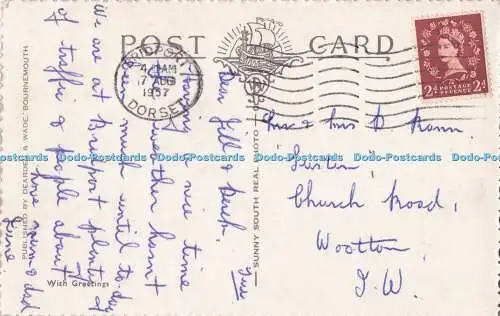 POST CARD
BRIDPORT
4 15 AM
17 AUG
1957
DORSET
POSTAGE
REVENUE
2D 2D
Dear Jill & Derek.
Having a nice time
weather hasn't
been much until to-day
We are at Bridport plenty of
traffic & people about
love mum & dad
June.
Mr & Mrs D
Church Road,
Wootton
I.W.
Wish Greetings
PUBLISHED BY DEARDEN & WADE, BOURNEMOUTH
SUNNY SOUTH REAL PHOTO
Dodo-Postcards Dodo-Postcards Dodo-Postcards Dodo-Postcards Dodo-Postcards